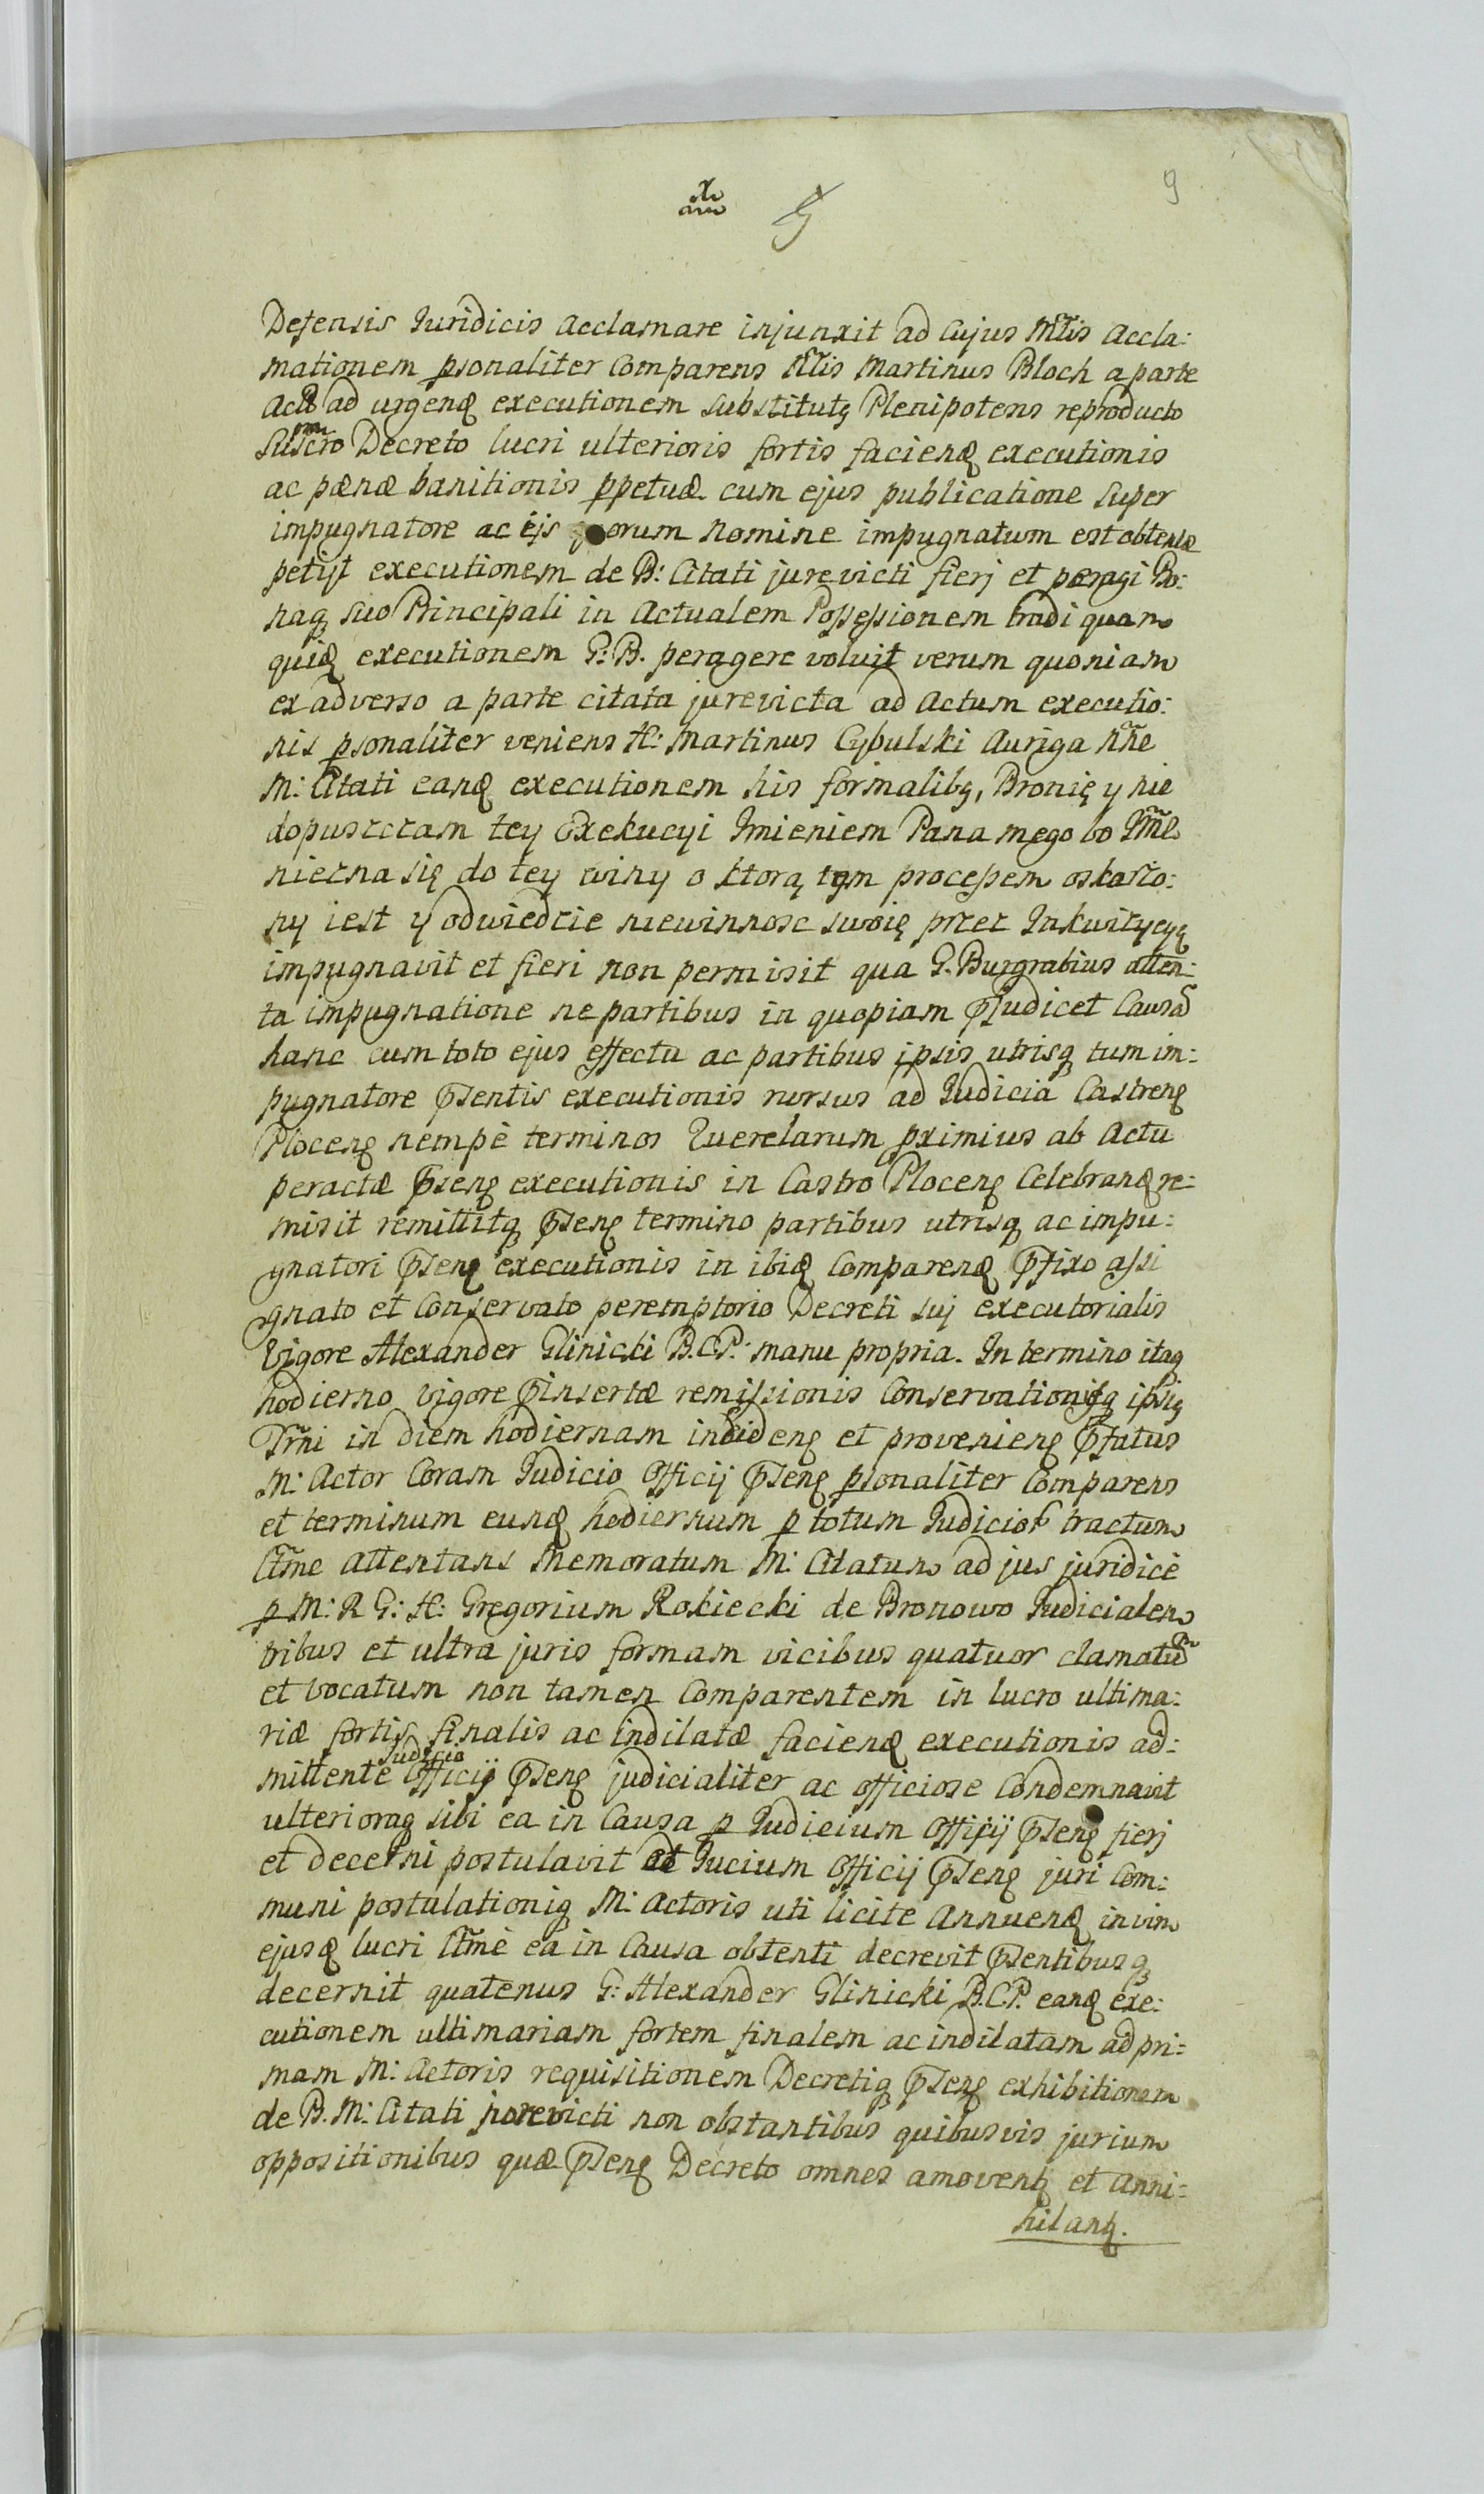 9
Defensis Juridicis acclamare injunxit ad cujus Mttis accla:
mationem psonaliter Comparens Nttis Martinus Bloch a parte
ad urgenq executionem substitutq Plenipotens reproducto
Decreto lucri ulterioris fortis facienq executionis
ac pænæ banitionis ppetuæ cum ejus publicatione super
impugnatore ac ejs orum Nomine impugnatum est obtentæ
petijt executionem de B: Citati jurevicti fierj et peragi Bo:
naq suo Principali in Actualem Possessionem tradi quam
quiq executionem G: B. peragere voluit verum quoniam
ex adverso a parte citata jurevicta ad Actum executio:
nis psonaliter veniens H: Martinus Cybulski Auriga Nne
M: Citati eanq executionem his formalibq, Bronię y nie
dopuszczam tey Exekucyi Imieniem Pana mego bo Jmć
niezna się do tey winy o ktorą tym processem oskarzo:
ny iest y odwiedzie niewinnosc swoię przez Inkwizycyę
impugnavit et fieri non permisit qua G. Burgrabius atten:
ta impugnatione ne partibus in quopiam pjudicet Causã
hanc cum toto ejus effectu ac partibus ipsis utrisq tum im:
pugnatore psentis executionis rursus ad Judicia Castrenq
Plocenq nempè terminos Querelarum pximius ab Actu
peractæ psenq executionis in Castro Plocenq Celebranq re:
misit remittitq psenq termino partibus utrisq ac impu:
gnatori psenq executionis in ibiq Comparenq pfixo assi
gnato et Conservato peremptorio Decreti suj executorialis
Vigore Alexander Glinicki B.C.P: manu propria. In termino itaq
hodierno vigore pinsertæ remissionis Conservationisq ipsiq
Trñi in diem hodiernam incidenq et provenienq pfatus
M: Actor Coram Judicio Officij psenq psonaliter Comparens
et terminum eunq hodiernum p totum Judicior tractum
Ltme attentans Memoratum M: Citatum ad jus juridicè
p M: R G: H: Gregorium Rokiecki de Bronowo Judicialem
tribus et ultra juris formam vicibus quatuor clamatũ
et vocatum non tamen Comparentem in lucro ultima:
riæ fortis finalis ac indilatæ facienq executionis ad:
mittente Judicio Officij psenq judicialiter ac officiose Condemnavit
ulterioraq sibi ea in Causa p Judicium Officij psenq fierj
et decerni postulavit et Jucium Officij psenq juri Com:
muni postulationiq M: Actoris uti licite Annuenq in vim
ejusq lucri Ltmè ea in Causa obtenti decrevit psentibusq
decernit quatenus G: Alexander Glinicki B.C.P. eanq exe:
cutionem ultimariam fortem finalem ac indilatam ad pri:
mam M: Actoris requisitionem Decretiq psenq exhibitionem
de B. M: Citati jurevicti non obstantibus quibusvis jurium
oppositionibus quæ psenq Decreto omnes amoventq et Anni:
hilantq.